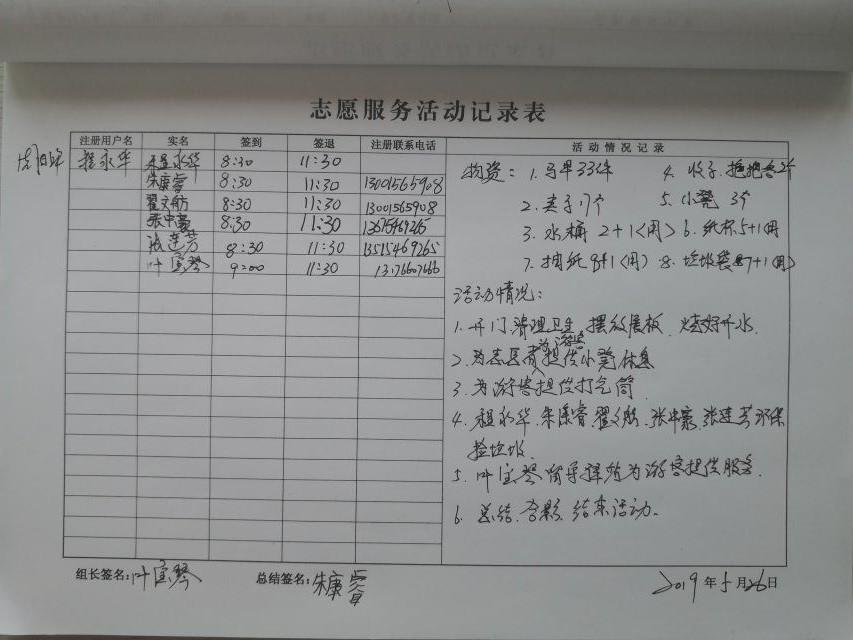 志愿服务活动记录表
注册用户名 实名 签到 签退 注册联系电话 活动情况记录
程永华 程永华 8:30 11:30
朱康睿 8:30 11:30 13001565908
翟文舫 8:30 11:30 13001565908
张中豪 8:30 11:30
张连芳 8:30 11:30 13515469265
叶宝琴 9:00 11:30
物资: 1. 马甲33件 4.
2. 夹子17个 5. 小凳 3个
3. 水桶 2+1(用) 6. 纸杯5+1用
7. 抽纸9+1(用) 8. 垃圾袋7+1(用)
活动情况:
1. 开门.清理卫生.摆放展板.烧好开水.
2. 为志愿者为游客提供小凳休息
3. 为游客提供打气筒
4. 程永华.朱康睿.翟文舫.张中豪.张连芳环保
捡垃圾.
5. 叶宝琴留守驿站为游客提供服务.
6. 总结.合影.结束活动。
组长签名:叶宝琴 总结签名:朱康睿 2019年5月26日